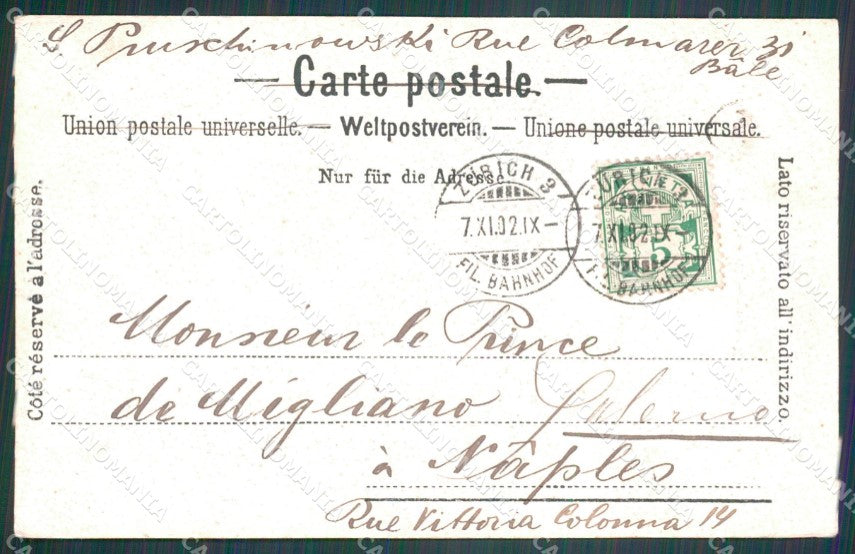 S Pruschinowski Rue Colmarer 31
Bâle
— Carte postale. —
Union postale universelle. — Weltpostverein. — Unione postale universale.
Nur für die Adresse.
ZÜRICH 9
7.XI.02.IX-
FIL. BAHNHOF
ZÜRICH
7.XI.02.IX-
FIL. BAHNHOF
HELVETIA
5
Côté réservé à l'adresse.
Lato riservato all'indirizzo.
Monsieur le Prince
de Migliano Salerno
à Nâples
Rue Vittoria Colonna 14
CARTOLINOMANIA